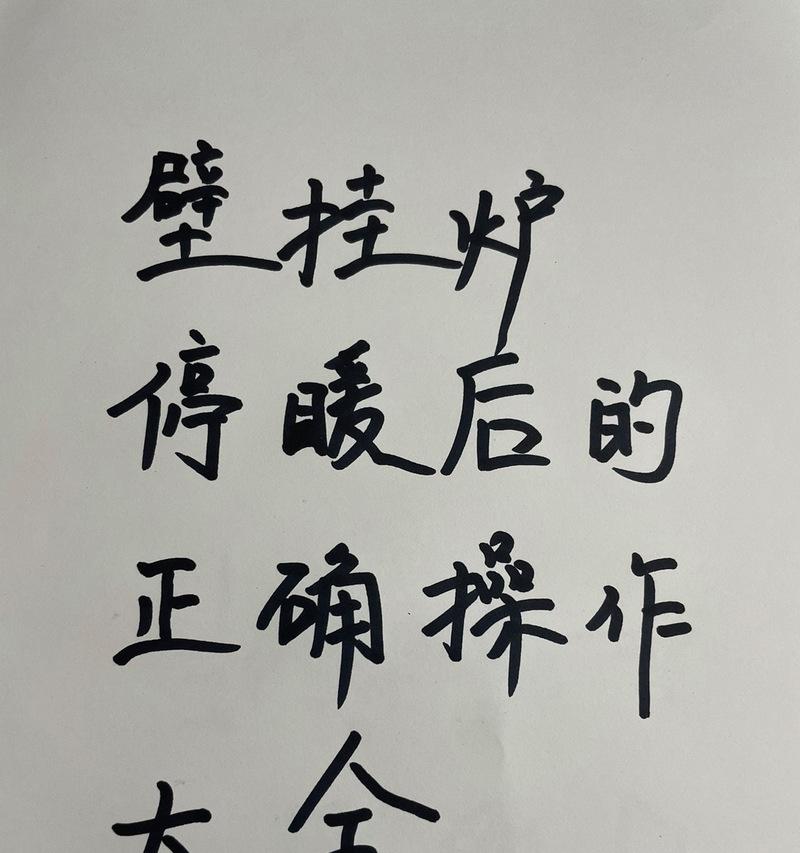 壁挂炉
停暖后的
正确操作
大全